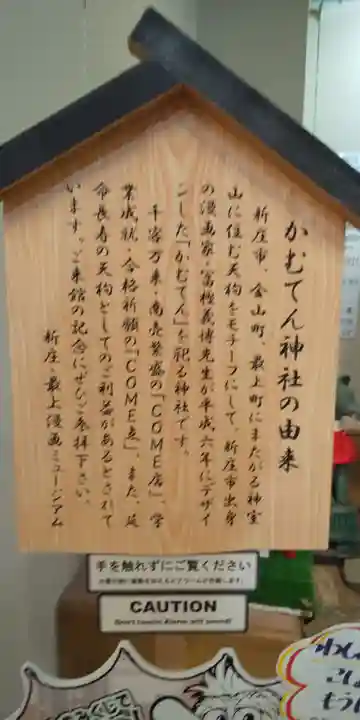 かむてん神社の由来
新庄市、金山町、最上町にまたがる神室
山に住む天狗をモチーフにして、新庄市出身
の漫画家・冨樫義博先生が平成六年にデザイ
ンした「かむてん」を祀る神社です。
千客万来・商売繁盛の「COME店」、学
業成就・合格祈願の「COME点」、また、延
命長寿の天狗としてのご利益があるとされて
います。ご来館の記念にぜひご参拝下さい。
新庄・最上漫画ミュージアム
手を触れずにご覧ください
CAUTION
わし
こし
もう